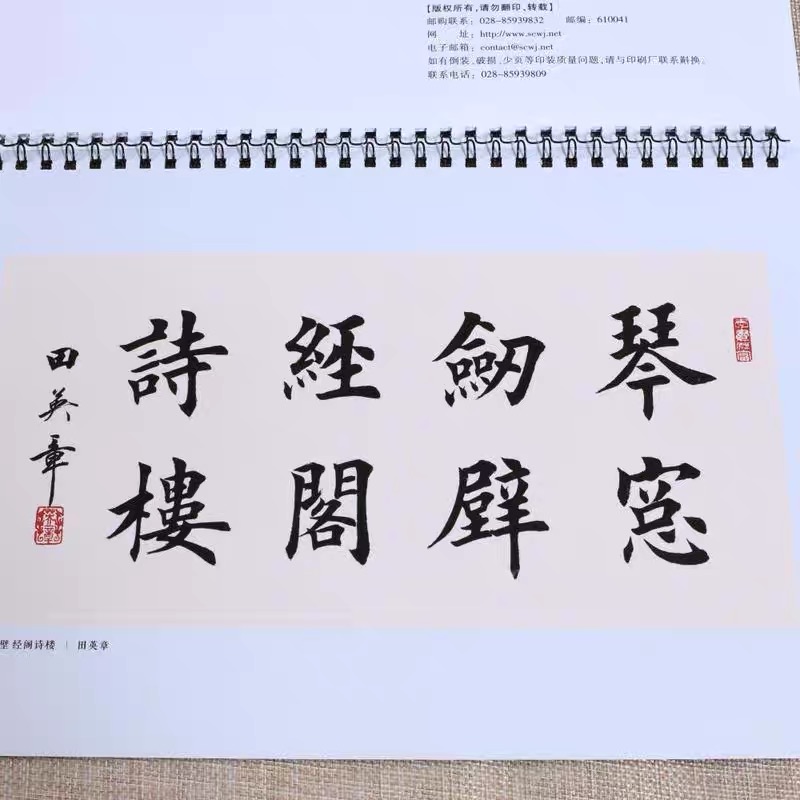 【版权所有，请勿翻印、转载】
邮购联系：028-85939832 邮编：610041
网 址：http://www.scwj.net
电子邮箱：contact@scwj.net
如有倒装、破损、少页等印装质量问题，请与印刷厂联系斟换。
联系电话：028-85939809
琴窓
劒壁
經閣
詩樓
田英章
壁 经阁诗楼 | 田英章